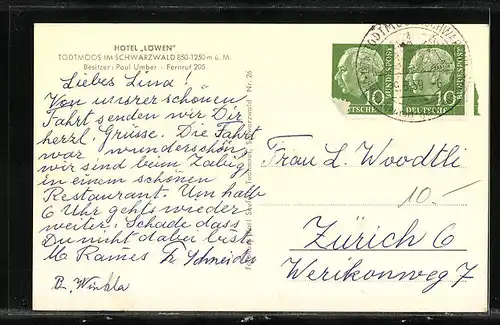 HOTEL „LÖWEN"
TODTMOOS IM SCHWARZWALD 850-1250 m ü. M.
Besitzer: Paul Umber - Fernruf 205
Liebes Lina!
Von unsrer schönen
Fahrt senden wir Dir
herzl. Grüsse. Die Fahrt
war wunderschön,
wir sind beim Zabig
in einem schönen
Restaurant. Um halb
6 Uhr gehts wieder
weiter. Schade dass
Du nicht dabei bist.
M. Rames Fr. Schneider
B. Winkla
Nr. 26
10
TSCHE
BUNDESPOST
10
DEUTSCHE
BUNDESPOST
Frau L. Woodtli
10.-
Zürich 6
Werikonweg 7